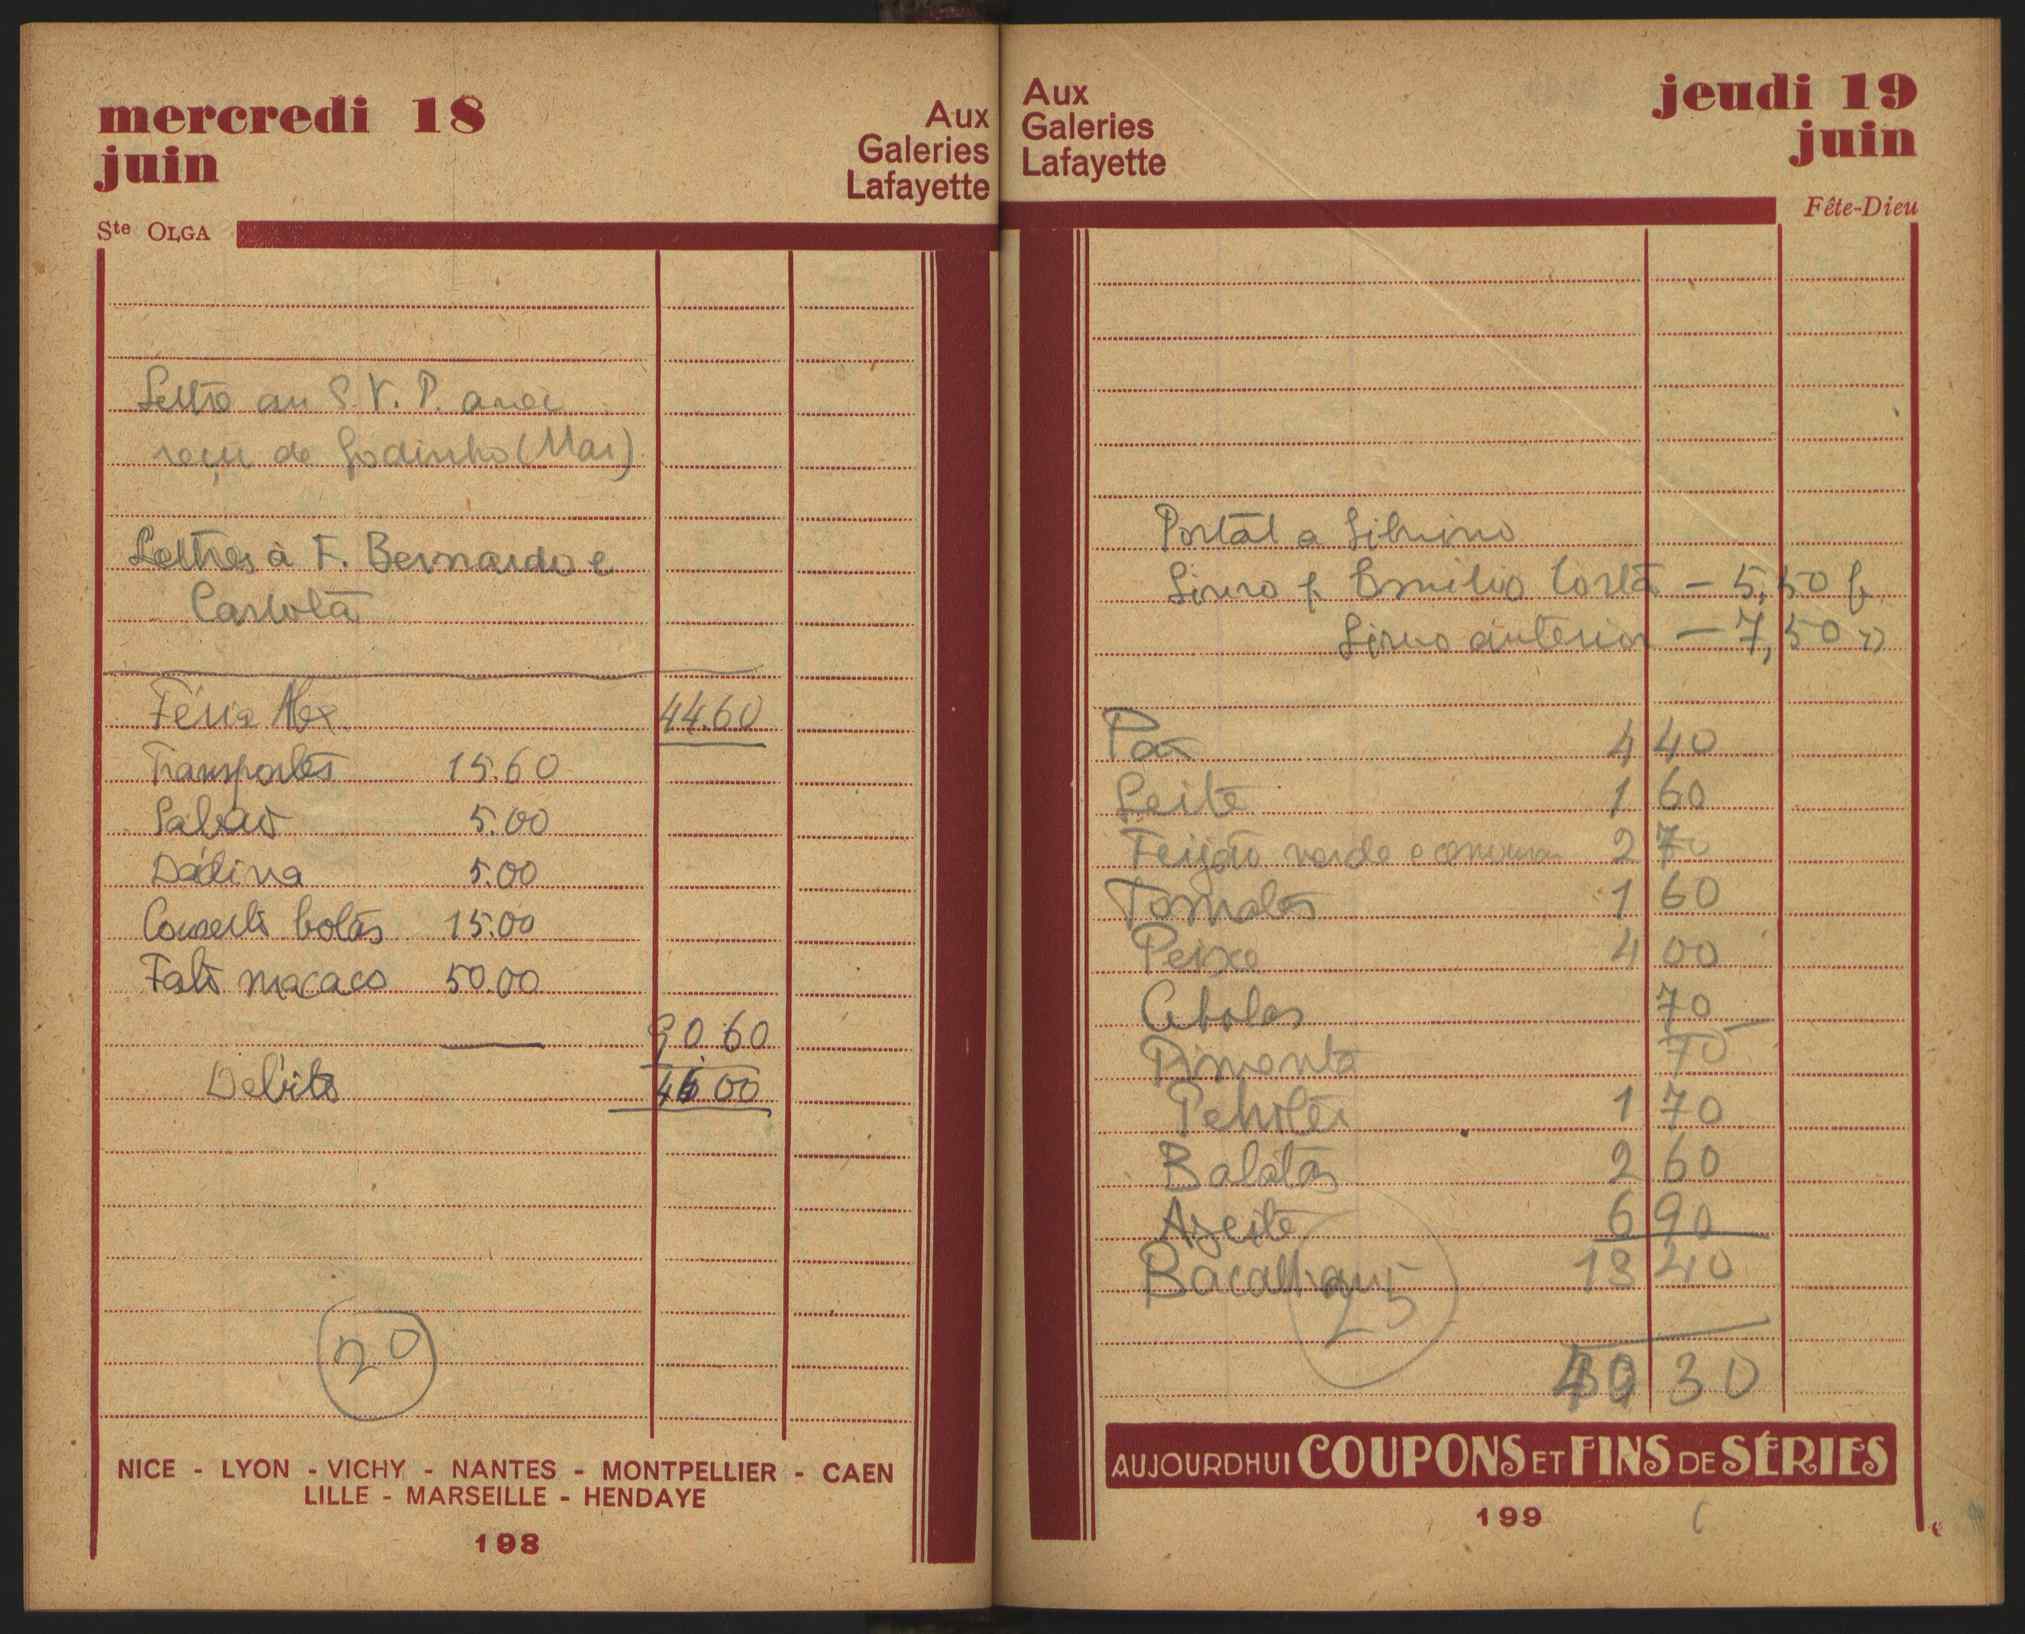 mercredi 18
juin
Aux
Galeries
Lafayette
Ste OLGA
Lettre au S. V. P. avec
reçu de Godinho (Mai)
Lettres à F. Bernardo e
Carlota
Féria Alex 44.60
Transportes 15.60
Sabão 5.00
Dádiva 5.00
Conserto botas 15.00
Fato macaco 50.00
90.60
Debito 46 00
20
NICE - LYON - VICHY - NANTES - MONTPELLIER - CAEN
LILLE - MARSEILLE - HENDAYE
198
Aux
Galeries
Lafayette
jeudi 19
juin
Fête-Dieu
Postal a Silvino
Livro p. Emilio Costa — 5,50 f.
Livro anterior — 7,50 »
Pão 4 40
Leite 1 60
Feijão verde e cenoura 2 70
Tomates 1 60
Peixe 4 00
Cebolas 70
Pimenta 70
Petroleo 1 70
Batatas 2 60
Azeite 6 90
Bacalhau 13 40
25
40 30
AUJOURDHUI COUPONS ET FINS DE SÉRIES
199